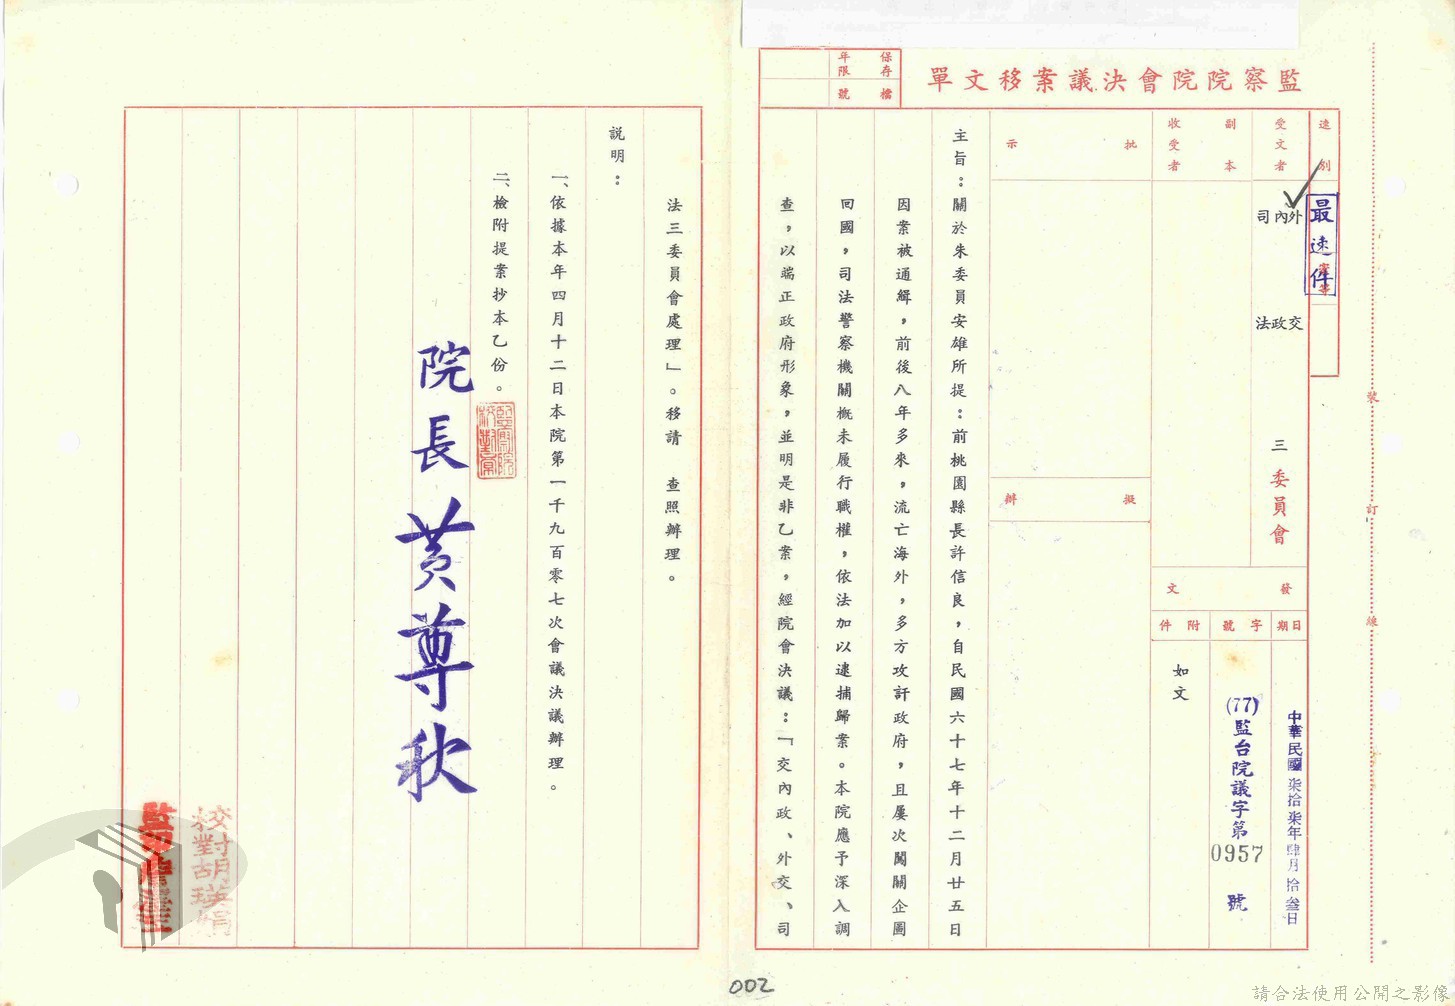 監察院院會決議案移文單
保存年限
檔號
速別
最速件
密等
受文者
外內司
交政法
三委員會
副本收受者
發文
日期
中華民國柒拾柒年肆月拾叁日
字號
(77)監台院議字第0957號
附件
如文
批示
擬辦
主旨：關於朱委員安雄所提：前桃園縣長許信良，自民國六十七年十二月廿五日
因案被通緝，前後八年多來，流亡海外，多方攻訐政府，且屢次闖關企圖
回國，司法警察機關概未履行職權，依法加以逮捕歸案。本院應予深入調
查，以端正政府形象，並明是非乙案，經院會決議：「交內政、外交、司
法三委員會處理」。移請　查照辦理。
說明：
一、依據本年四月十二日本院第一千九百零七次會議決議辦理。
二、檢附提案抄本乙份。
監察院校對章
院長 黃尊秋
校對胡瑛娟
裝
訂
線
002
請合法使用公開之影像